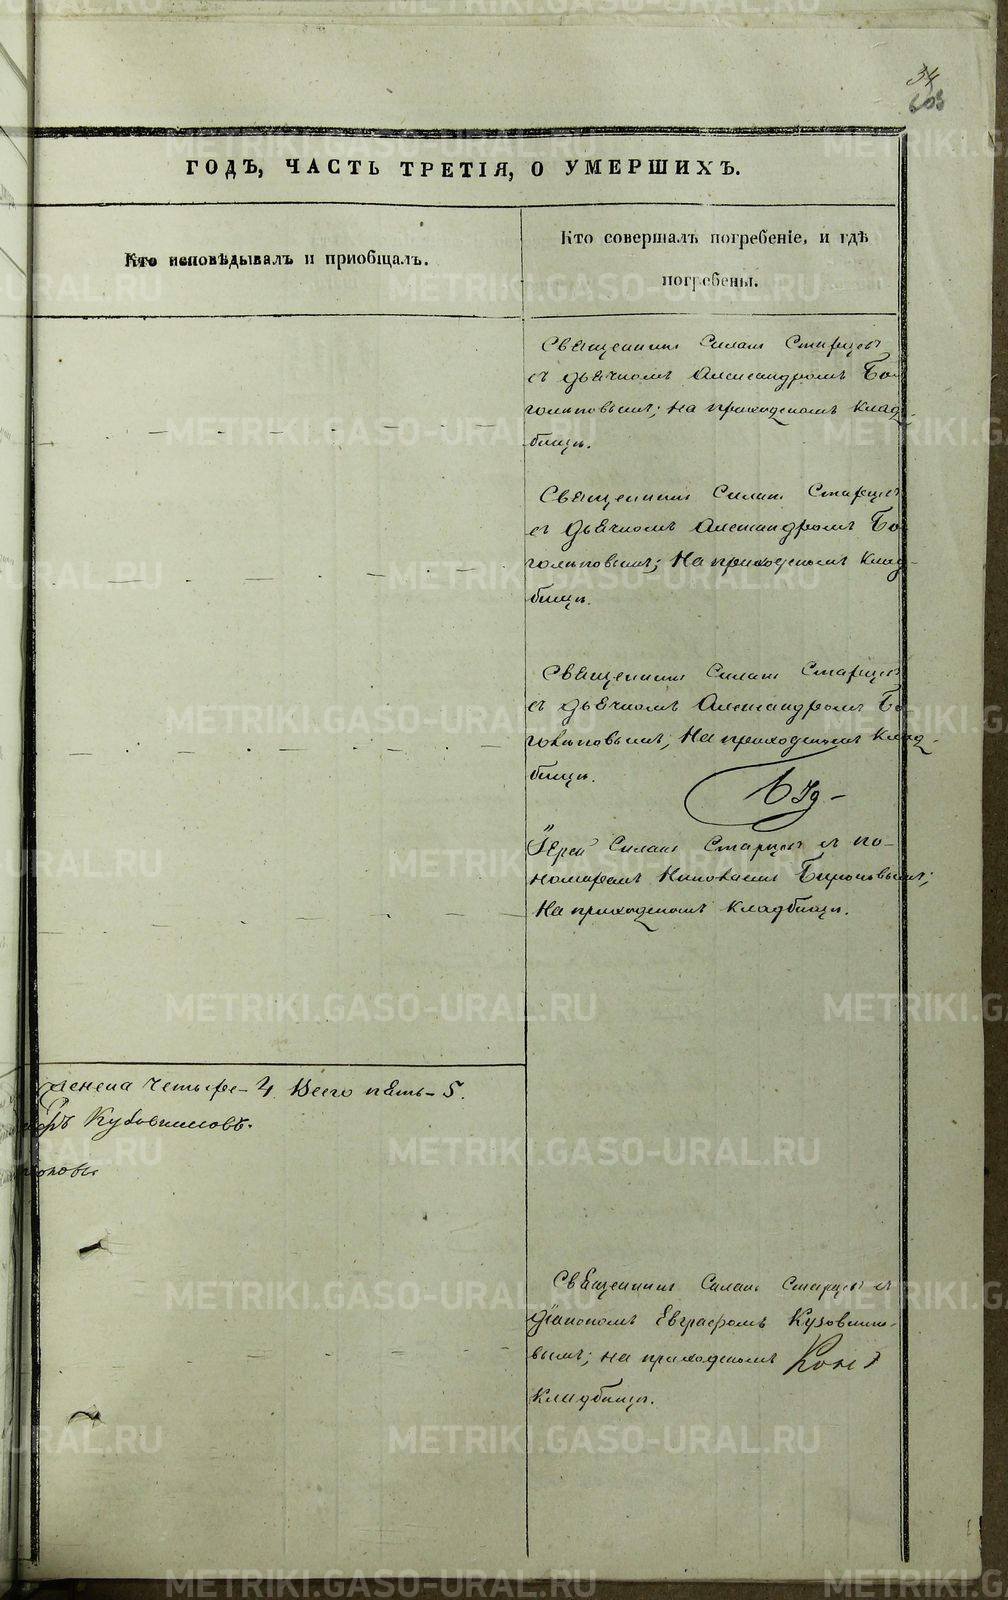 34
603
ГОДЪ, ЧАСТЬ ТРЕТІЯ, О УМЕРШИХЪ.
Кто исповѣдывалъ и пріобщалъ.
Кто совершалъ погребеніе, и гдѣ
погребены.
Священник Силан Старцев
съ дьячкомъ Александромъ Бо-
голиповымъ; на приходскомъ клад-
бищѣ.
Священник Силан Старцев
съ дьячкомъ Александромъ Бо-
голиповымъ; на приходскомъ клад-
бищѣ.
Священник Силан Старцев
съ дьячкомъ Александромъ Бо-
голиповымъ; на приходскомъ клад-
бищѣ.
Іерей Силан Старцев съ по-
номаремъ Николаемъ Бироковымъ;
на приходскомъ кладбищѣ.
женска четыре - 4. Всего пять - 5.
Кузовниковъ.
Священник Силан Старцев съ
діакономъ Евграфомъ Кузовнико-
вымъ; на приходскомъ
кладбищѣ.
METRIKI.GASO-URAL.RU